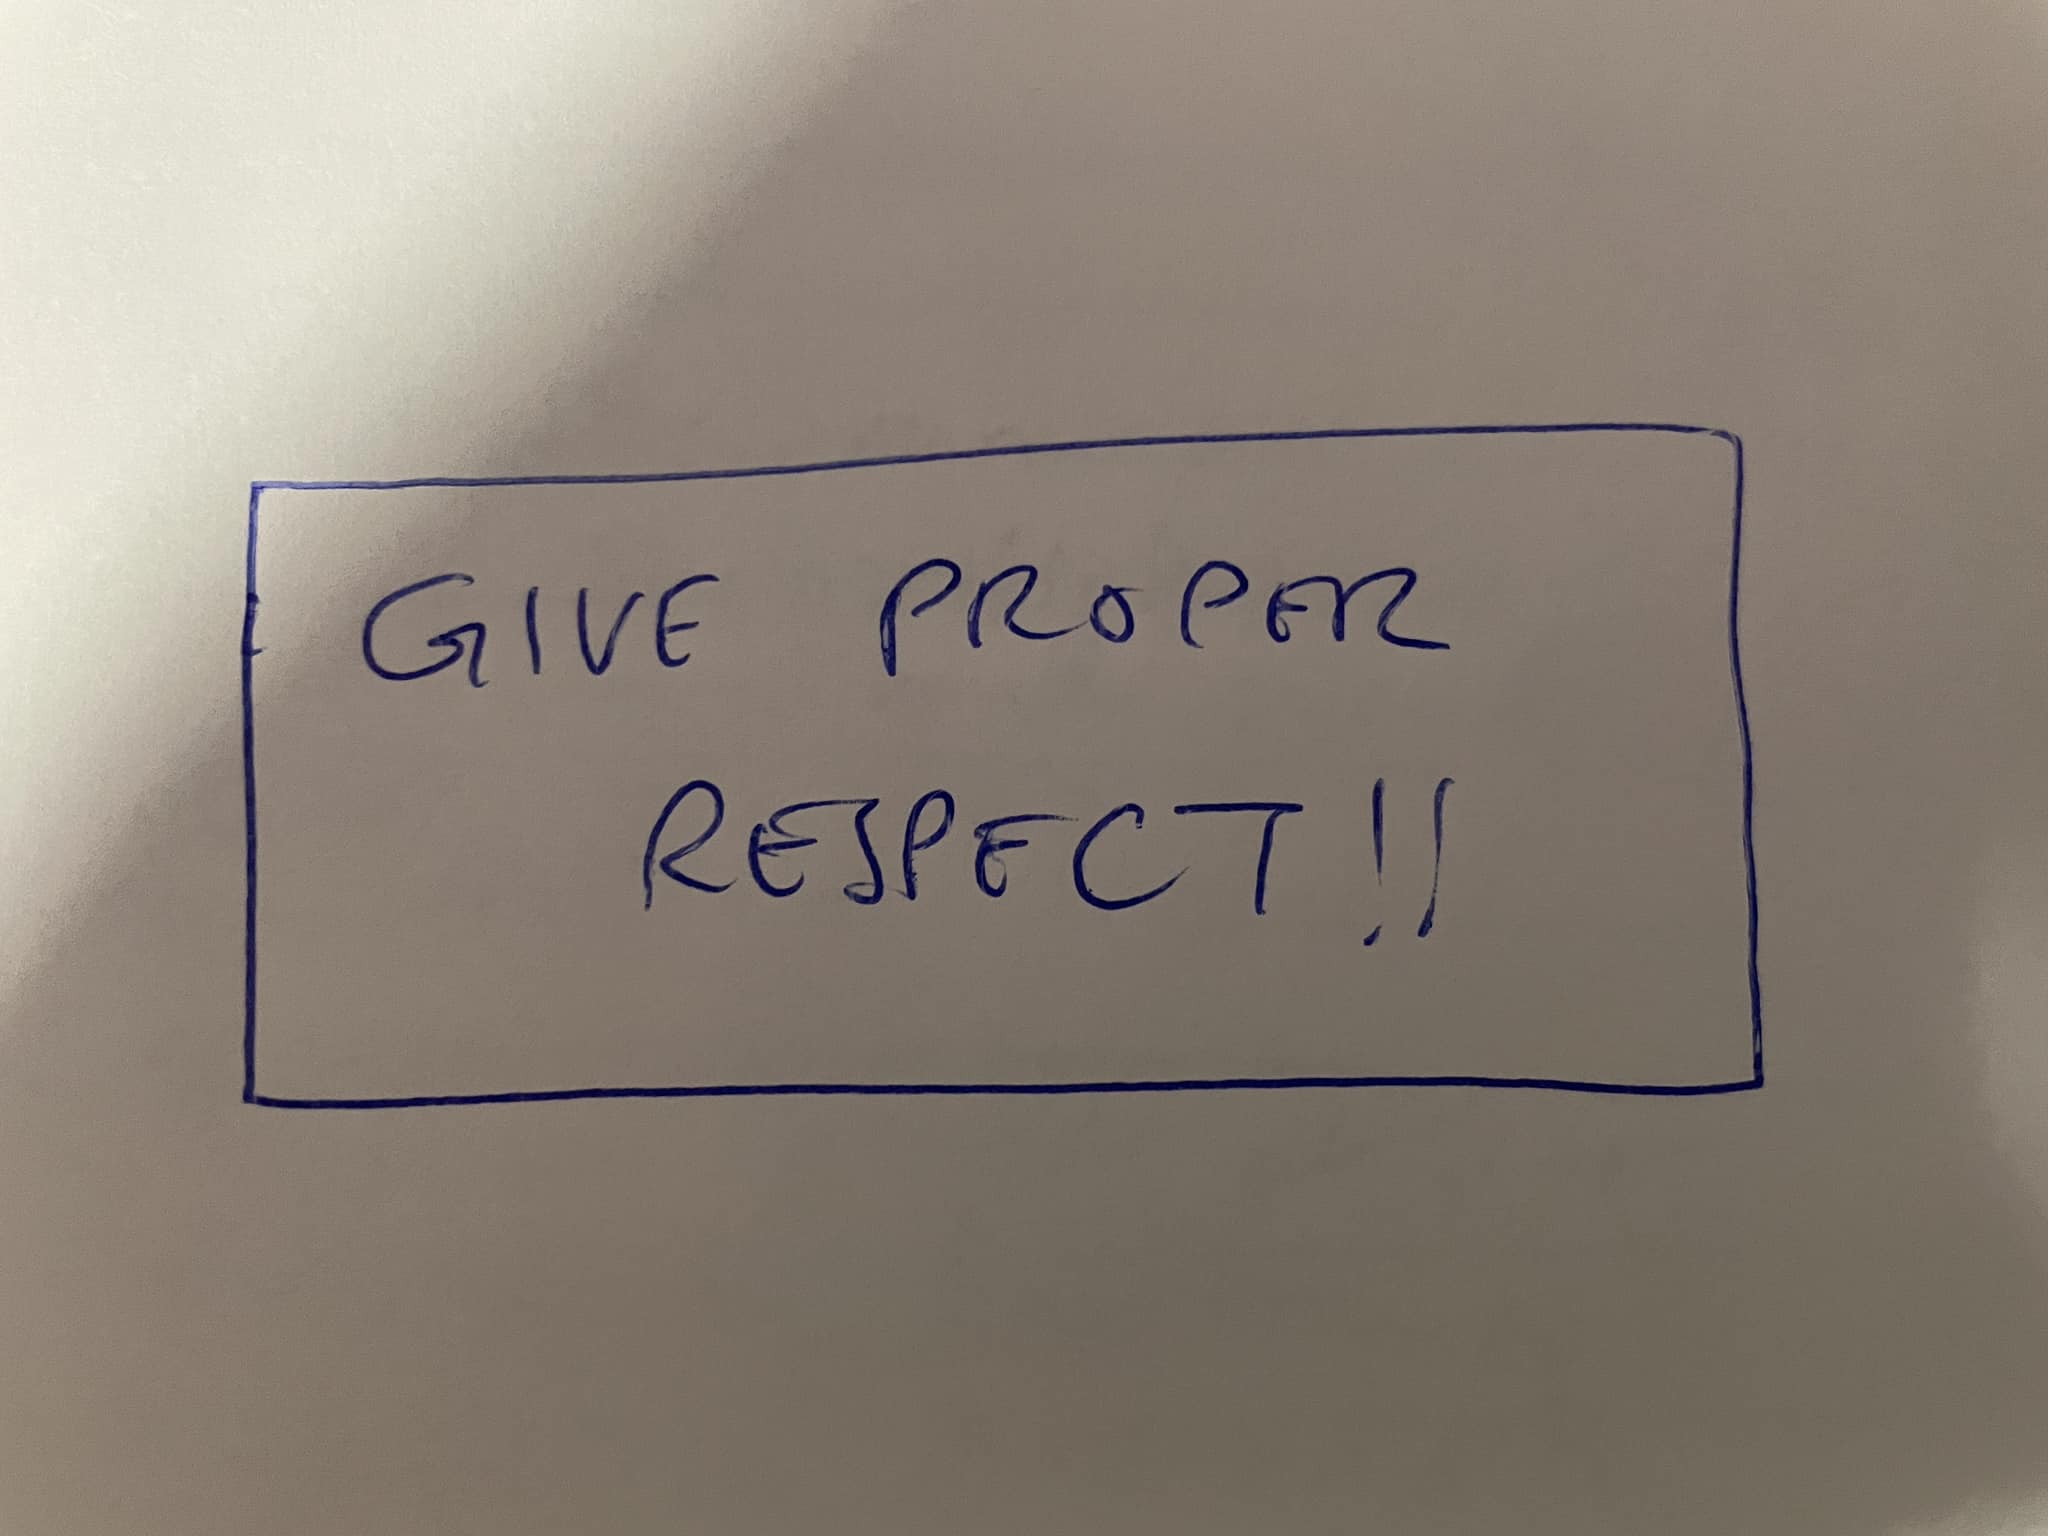 GIVE PROPER
RESPECT!!